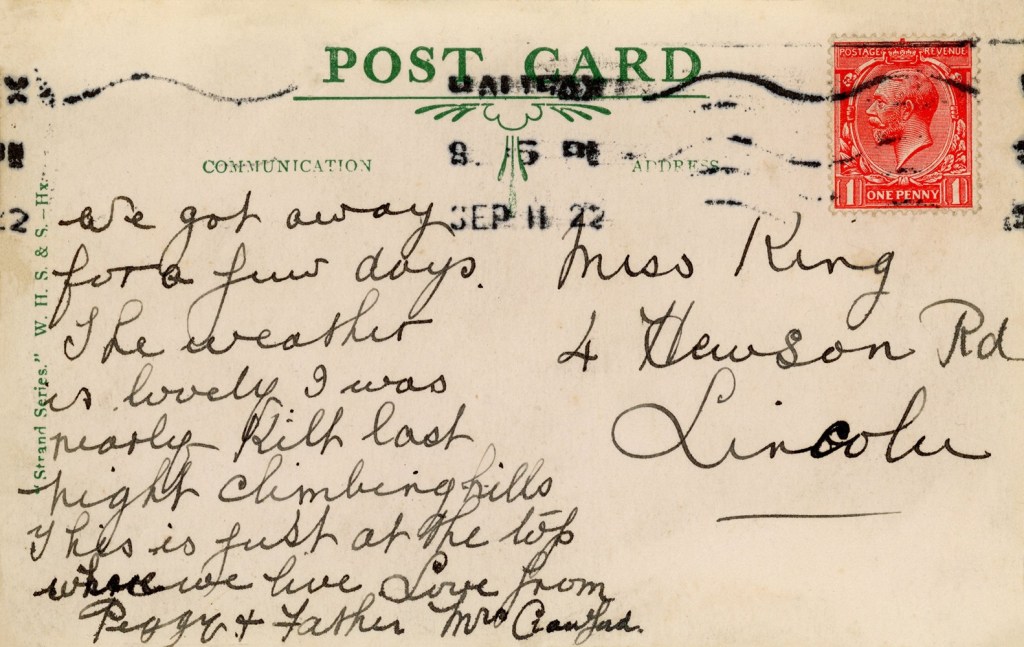 POST CARD
HALIFAX
8. 5 PM
SEP 11 22
POSTAGE REVENUE
1 ONE PENNY 1
COMMUNICATION
ADDRESS
"Strand Series." W. H. S. & S.–Hx.
We got away
for a few days.
The weather
is lovely I was
nearly Kilt last
night climbing hills
This is just at the top
where we live Love from
Peggy & Father Mrs Crawford.
Miss King
4 Hewson Rd
Lincoln